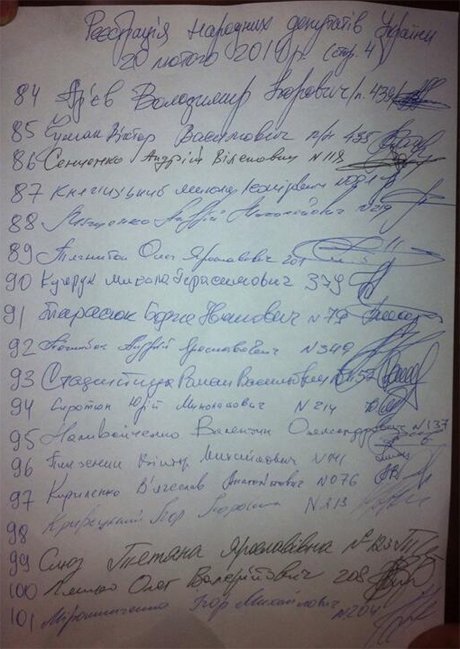 Реєстрація народних депутатів України
20 лютого 2014 р. (стр. 4
84 Ар'єв Володимир Ігорович п. 439
85 Чумак Віктор Васильович п/н 435
86 Сенченко Андрій Віленович N 118
87 Княжицький Микола
88 Андрій Миколайович N 219
89 Тягнибок Олег Ярославович 201
90 Кучерук Микола Герасимович 379
91 Тарасюк Борис Іванович N 79
92 Андрій Ярославович N 349
93 Стаднійчук Роман Васильович
94 Сиротюк Юрій Миколайович N 214
95 Наливайченко Валентин Олександрович N 137
96 Пинзеник Віктор Михайлович N 141
97 Кириленко В'ячеслав Анатолійович N 076
98 Кривецький Ігор N 213
99 Слюз Тетяна Ярославівна N
100 Ляшко Олег Валерійович 208
101 Мірошниченко Ігор Михайлович N 204